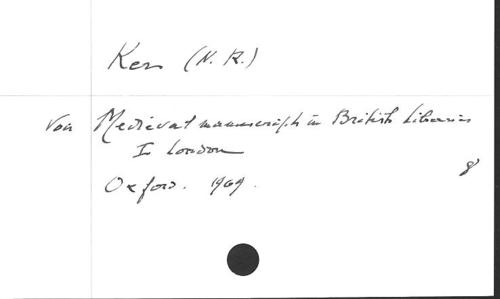 Ker (N. R.)
Voir Medieval manuscripts in British Libraries
I London
8
Oxford. 1969.